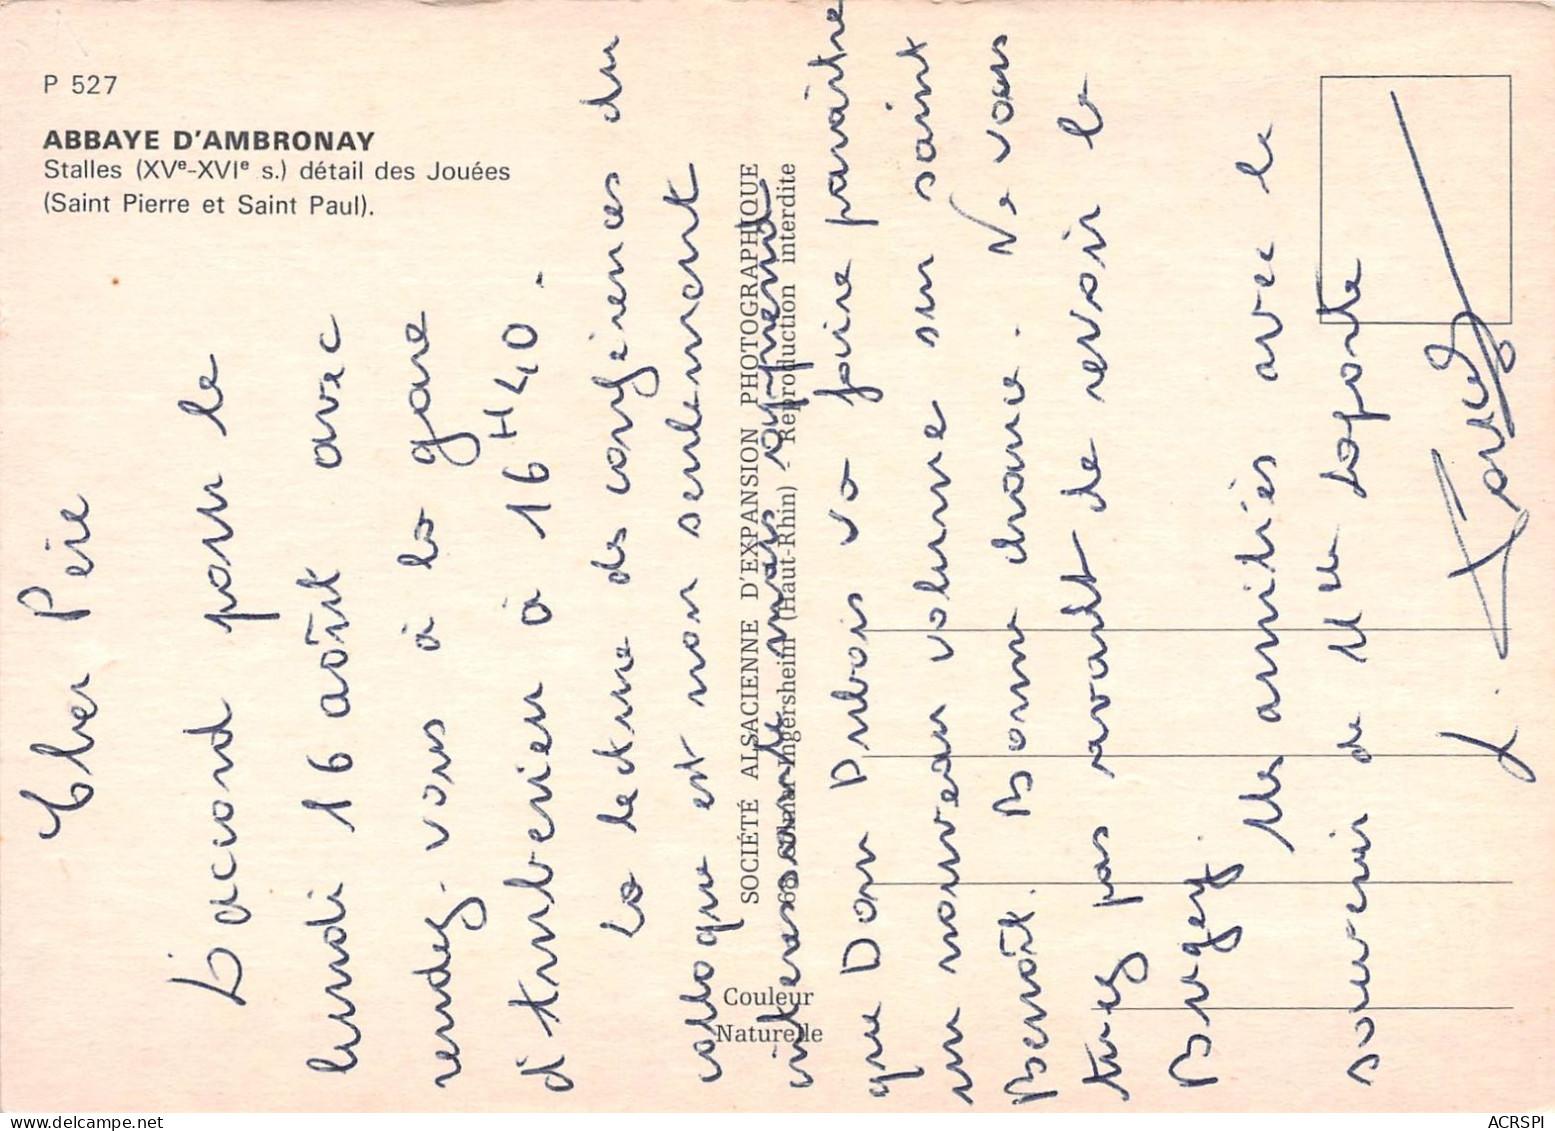 P 527
ABBAYE D'AMBRONAY
Stalles (XVe-XVIe s.) détail des Jouées
(Saint Pierre et Saint Paul).
SOCIÉTÉ ALSACIENNE D'EXPANSION PHOTOGRAPHIQUE
68 Colmar-Ingersheim (Haut-Rhin) - Reproduction interdite
Couleur
Naturelle
Cher Père
D'accord pour le
lundi 16 août avec
rendez-vous à la gare
d'Ambérieu à 16H40.
La lecture des conférences du
colloque est non seulement
intéressante mais apprend
que Dom Dubois va faire paraître
un nouveau volume sur saint
Benoît. Bonne chance. Ne vous
tuez pas avant de revoir le
Bugey.
Mes amitiés avec le
souvenir de Mlle Laporte
J.
ACRSPI